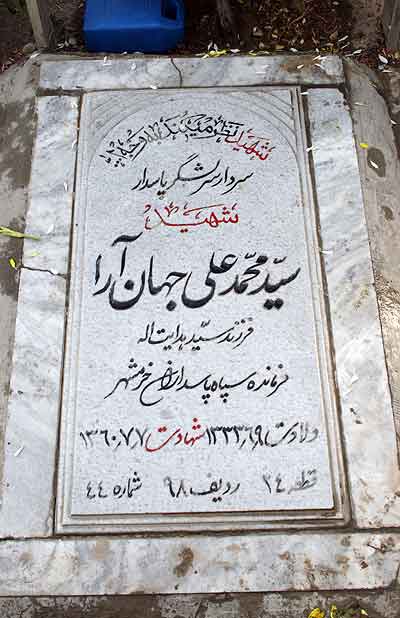 شهید نظر میکند به وجه الله
سردار سرلشگر پاسدار
شهید
سیّد محمّد علی جهان آرا
فرزند سیّد هدایت اله
فرمانده سپاه پاسداران خرمشهر
ولادت ۱۳۳۳٫۶٫۹ شهادت ۱۳۶۰٫۷٫۷
قطعه ۲۴ ردیف ۹۸ شماره ۴۴